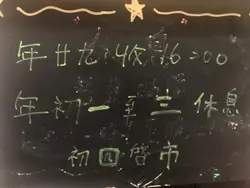 年廿九:收16:00
年初一至三休息
初四啓市